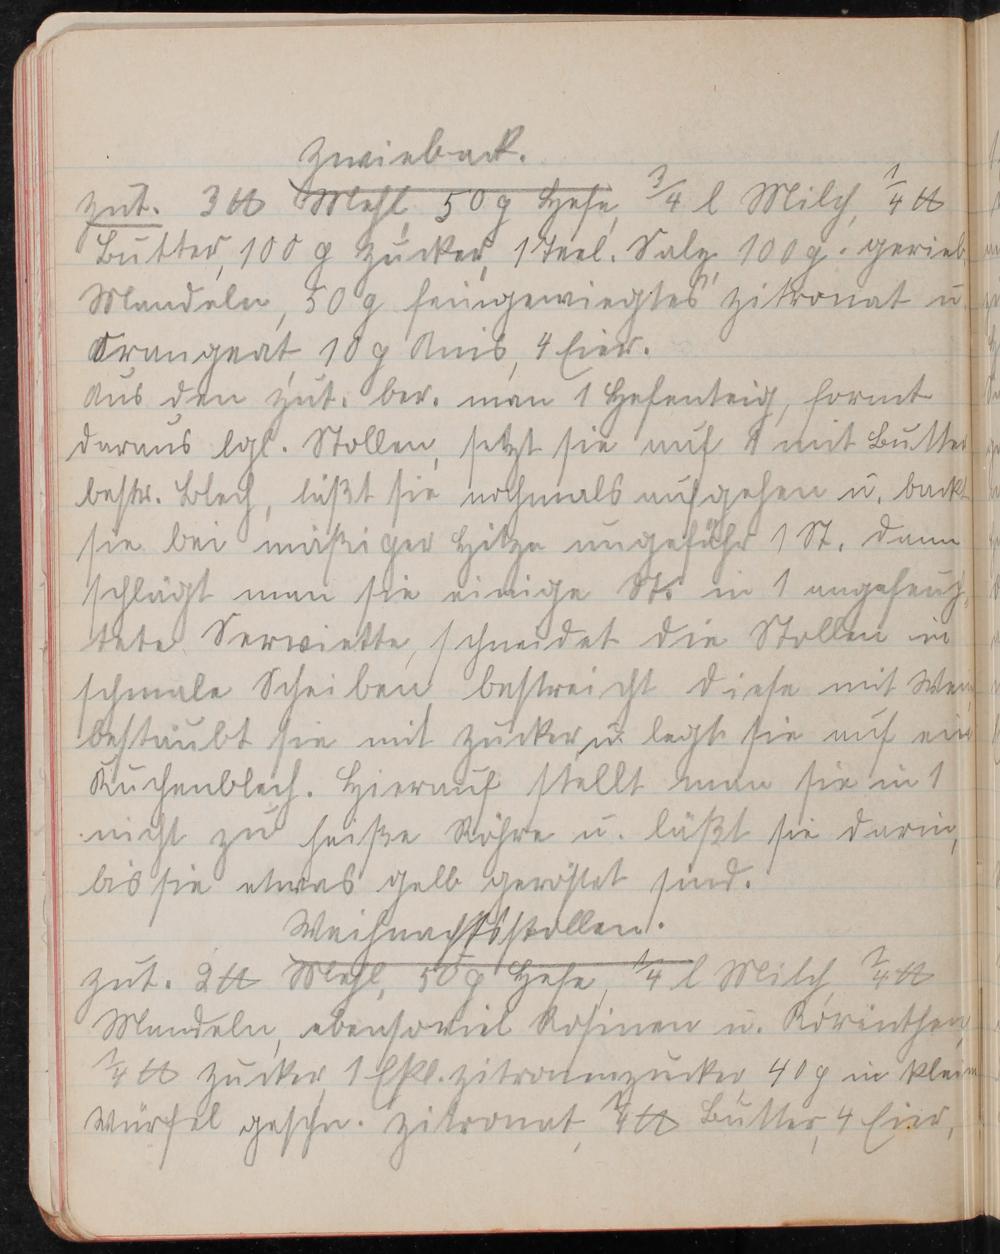 Zwieback.
Zut. 3 ℔ Mehl, 50 g Hefe, 3/4 l Milch, 1/4 ℔
Butter, 100 g Zucker, 1 Teel. Salz, 100 g. gerieb.
Mandeln, 50 g feingewiegtes Zitronat u.
Orangeat, 10 g Anis, 4 Eier.
Aus den Zut. ber. man 1 Hefenteig, formt
daraus lgl. Stollen, setzt sie auf 1 mit Butter
bestr. Blech, läßt sie nochmals aufgehen u. backt
sie bei mäßiger Hitze ungefähr 1 St. Dann
schlägt man sie einige St. in 1 angefeuch-
tete Serviette, schneidet die Stollen in
schmale Scheiben, bestreicht diese mit
bestäubt sie mit Zucker, u. legt sie auf ein
Kuchenblech. Hierauf stellt man sie in 1
nicht zu heiße Röhre u. läßt sie darin,
bis sie etwas gelb geröstet sind.
Weihnachtsstollen.
Zut. 2 ℔ Mehl, 50 g Hefe, 1/4 l Milch, 1/4 ℔
Mandeln, ebensoviel Rosinen u. Korinthen,
1/4 ℔ Zucker, 1 Eßl. Zitronenzucker, 40 g in klein
Würfel geschn. Zitronat, 1/4 ℔ Butter, 4 Eier,